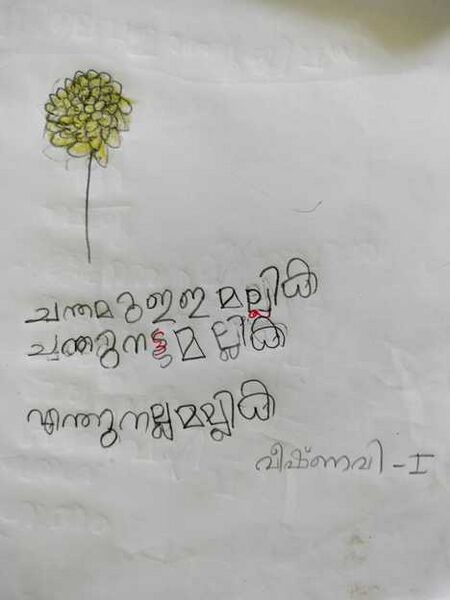 ചന്തമുഇഇ മല്ലിക
ചന്തുനട്ടമല്ലിക
എന്തുനല്ലമല്ലിക
വീഷ്ണവി - I